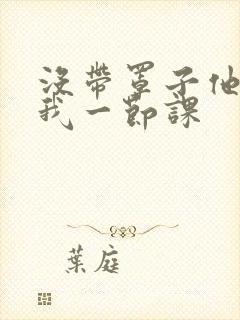 没帶罩子他
我一節課
葉庭